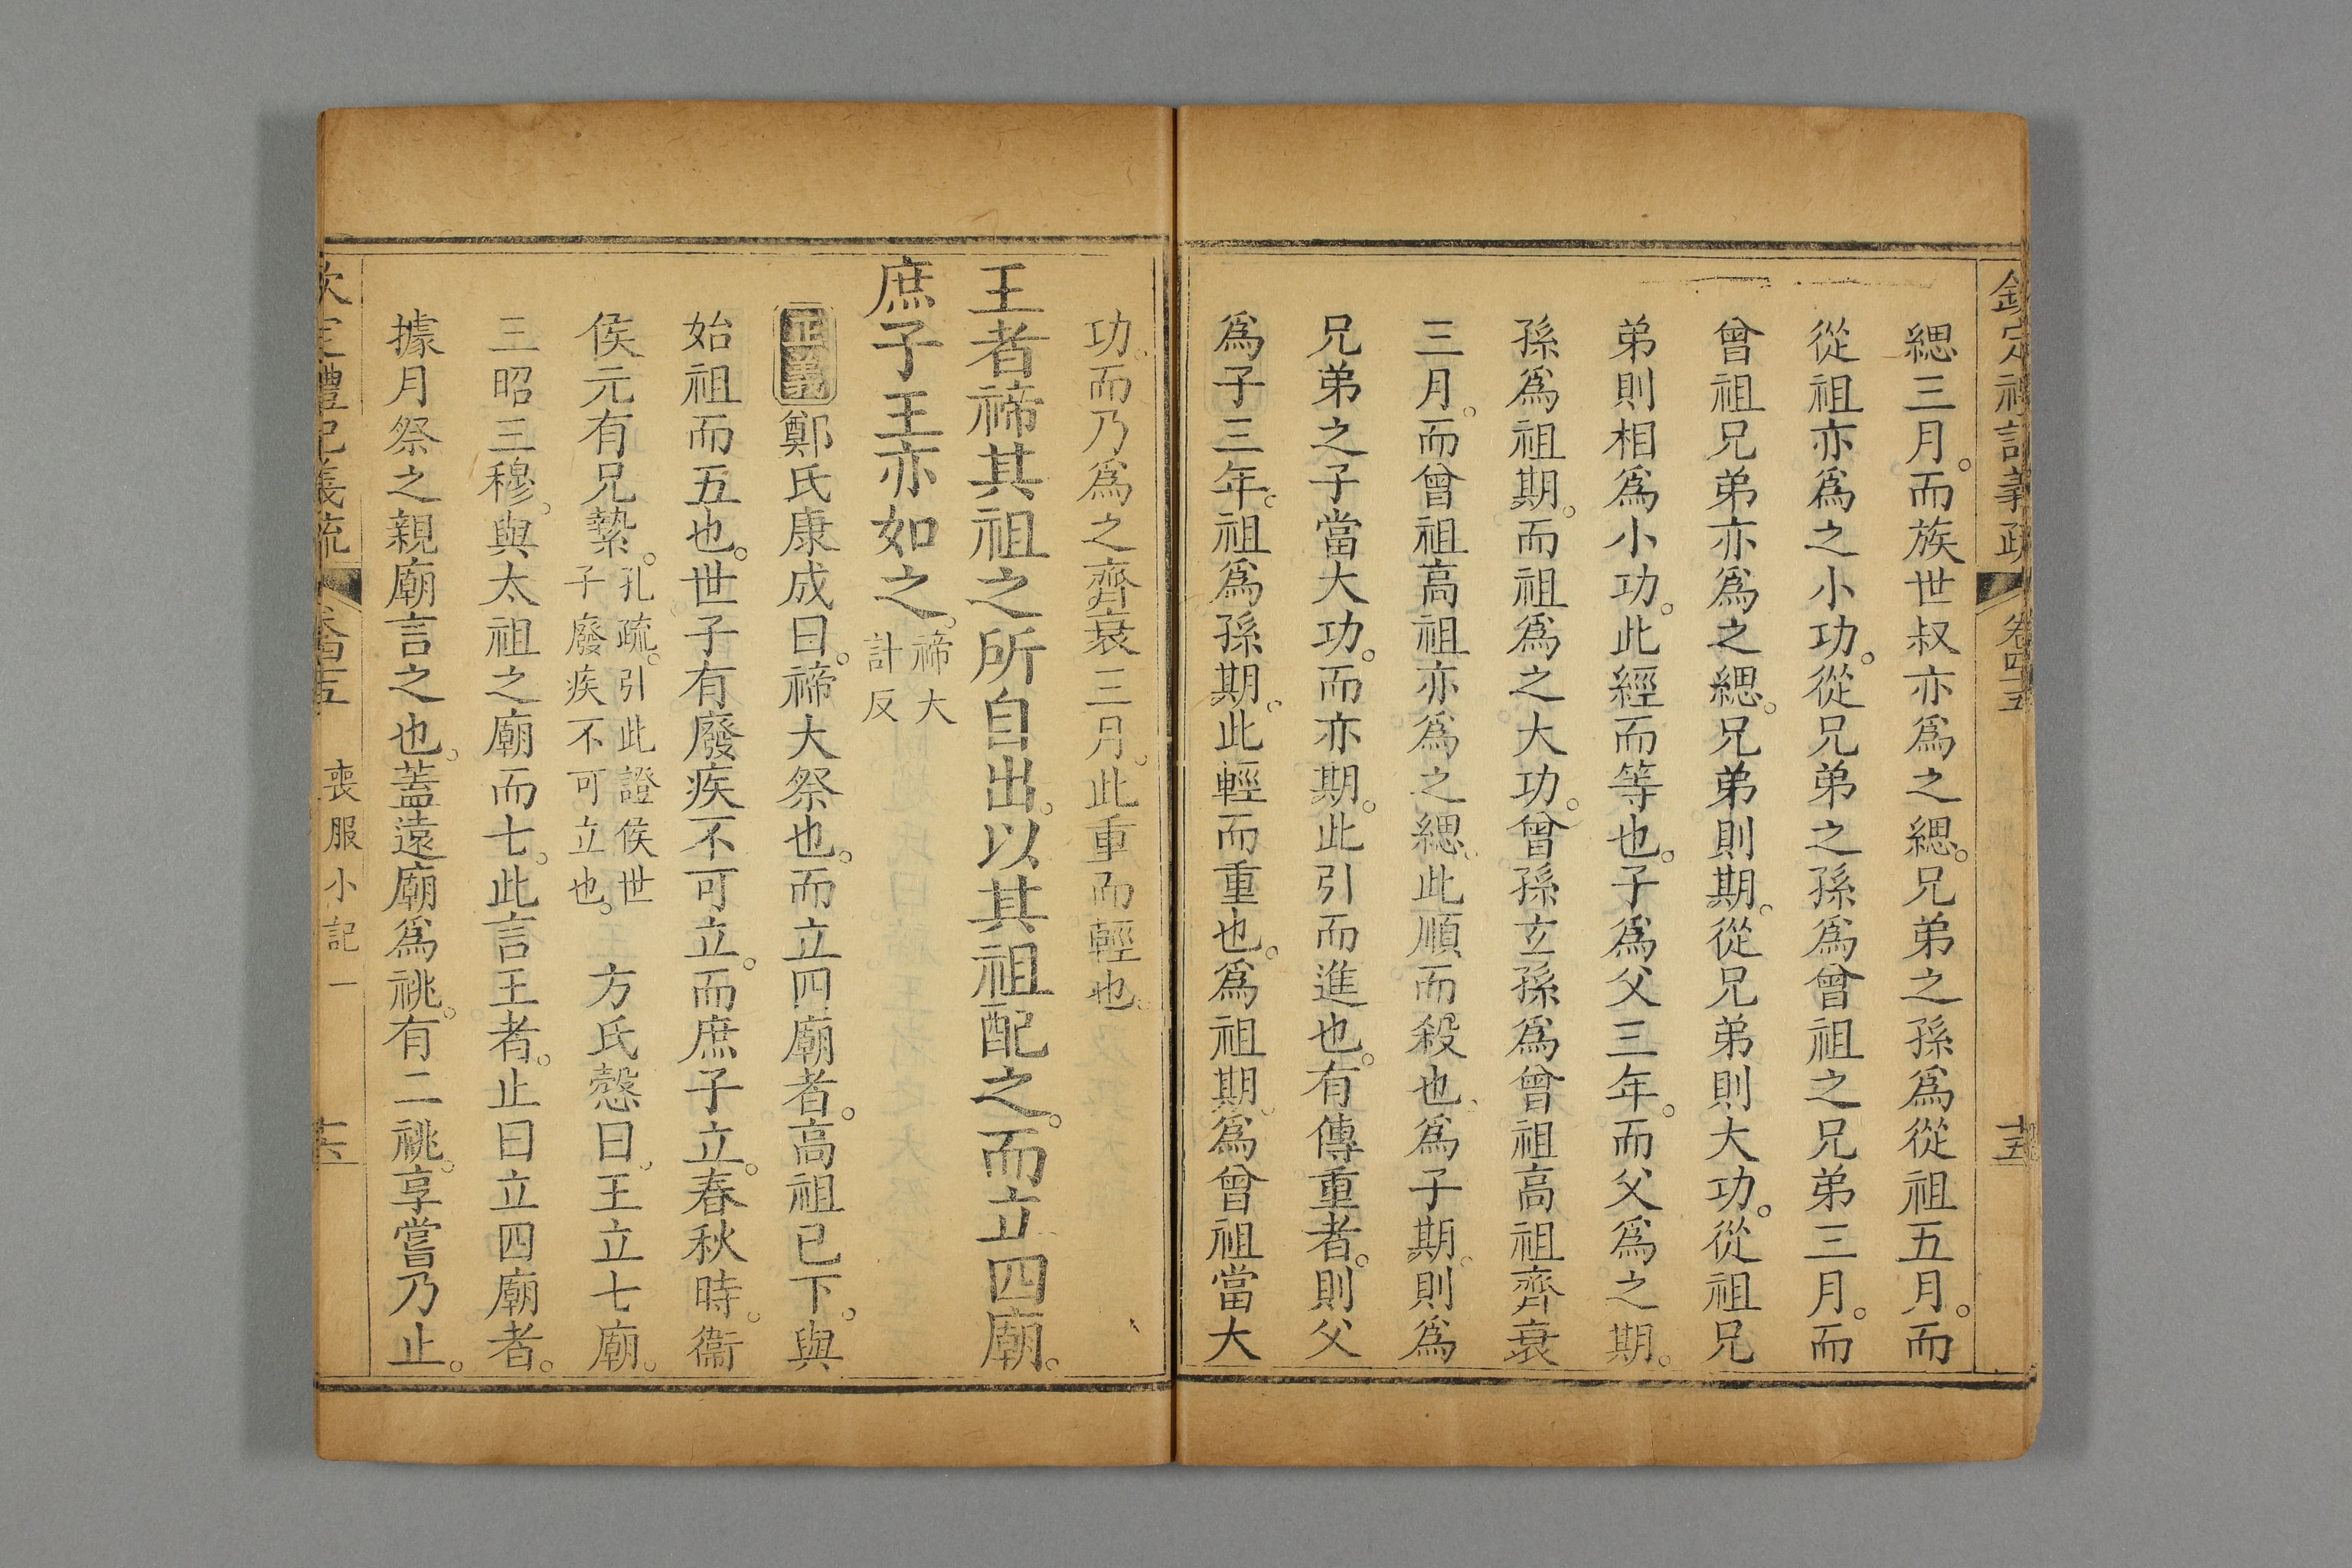 欽定禮記義疏 卷四十五 十五
緦三月。而族世叔亦為之緦。兄弟之孫為從祖五月。而
從祖亦為之小功。從兄弟之孫為曾祖之兄弟三月。而
曾祖兄弟亦為之緦。兄弟則期。從兄弟則大功。從祖兄
弟則相為小功。此經而等也。子為父三年。而父為之期。
孫為祖期。而祖為之大功。曾孫玄孫為曾祖高祖齊衰
三月。而曾祖高祖亦為之緦。此順而殺也。為子期。則為
兄弟之子當大功。而亦期。此引而進也。有傳重者。則父
為子三年。祖為孫期。此輕而重也。為祖期。為曾祖當大
功。而乃為之齊衰三月。此重而輕也。
王者禘其祖之所自出。以其祖配之。而立四廟。
庶子王亦如之。禘大計反
正義鄭氏康成曰。禘大祭也。而立四廟者。高祖已下。與
始祖而五也。世子有廢疾不可立。而庶子立。春秋時。衞
侯元有兄縶。孔疏。引此證侯世子廢疾不可立也。方氏慤曰。王立七廟。
三昭三穆。與太祖之廟而七。此言王者。止曰立四廟者。
據月祭之親廟言之也。蓋遠廟為祧。有二祧。享嘗乃止。
欽定禮記義疏 卷四十五 喪服小記一 十六